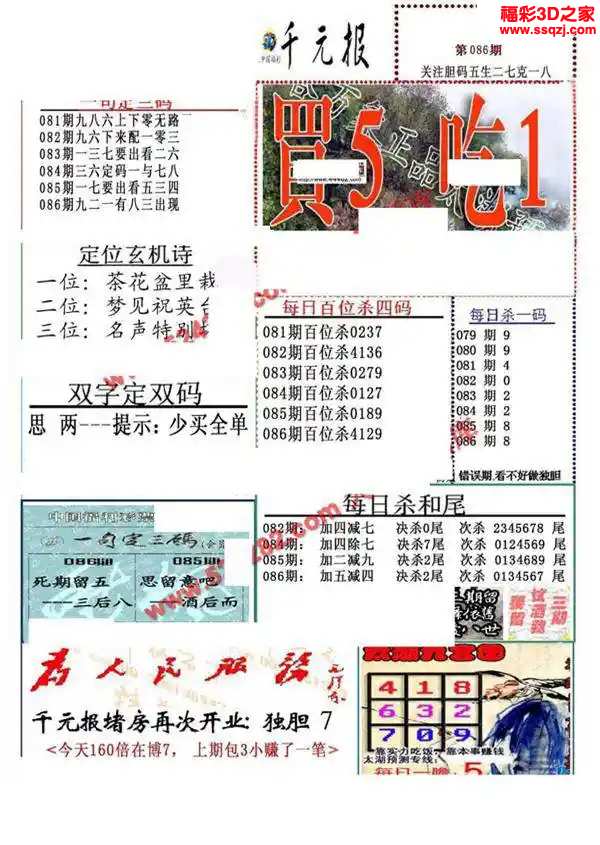 福彩3D之家
www.ssqzj.com
千元报
第086期
关注胆码五生二七克一八
一句定三码
081期九八六上下零无路
082期九六下来配一零三
083期一三七要出看二六
084期三六定码一与七八
085期一七要出看五三四
086期九二一有八三出现
買5吃1
定位玄机诗
一位：茶花盆里栽
二位：梦见祝英台
三位：名声特别
每日百位杀四码
081期百位杀0237
082期百位杀4136
083期百位杀0279
084期百位杀0127
085期百位杀0189
086期百位杀4129
每日杀一码
079 期 9
080 期 9
081 期 4
082 期 0
083 期 2
084 期 2
085 期 8
086 期 8
错误期,看不好做独胆
双字定双码
思 两---提示：少买全单
每日杀和尾
082期： 加四减七 决杀0尾 次杀 2345678 尾
084期： 加四除七 决杀7尾 次杀 0124569 尾
085期： 加二减九 决杀2尾 次杀 0134689 尾
086期： 加五减四 决杀2尾 次杀 0134567 尾
一句定三碼
086期 085期
死期留五 思留意吧
---三后八 ---酒后而
为人民服务
千元报堵房再次开业：独胆 7
<今天160倍在博7，上期包3小赚了一笔>
4 1 8
6 3 2
7 0 9
靠实力吃饭，靠本事赚钱
太湖预测专线：
每日一胆 5